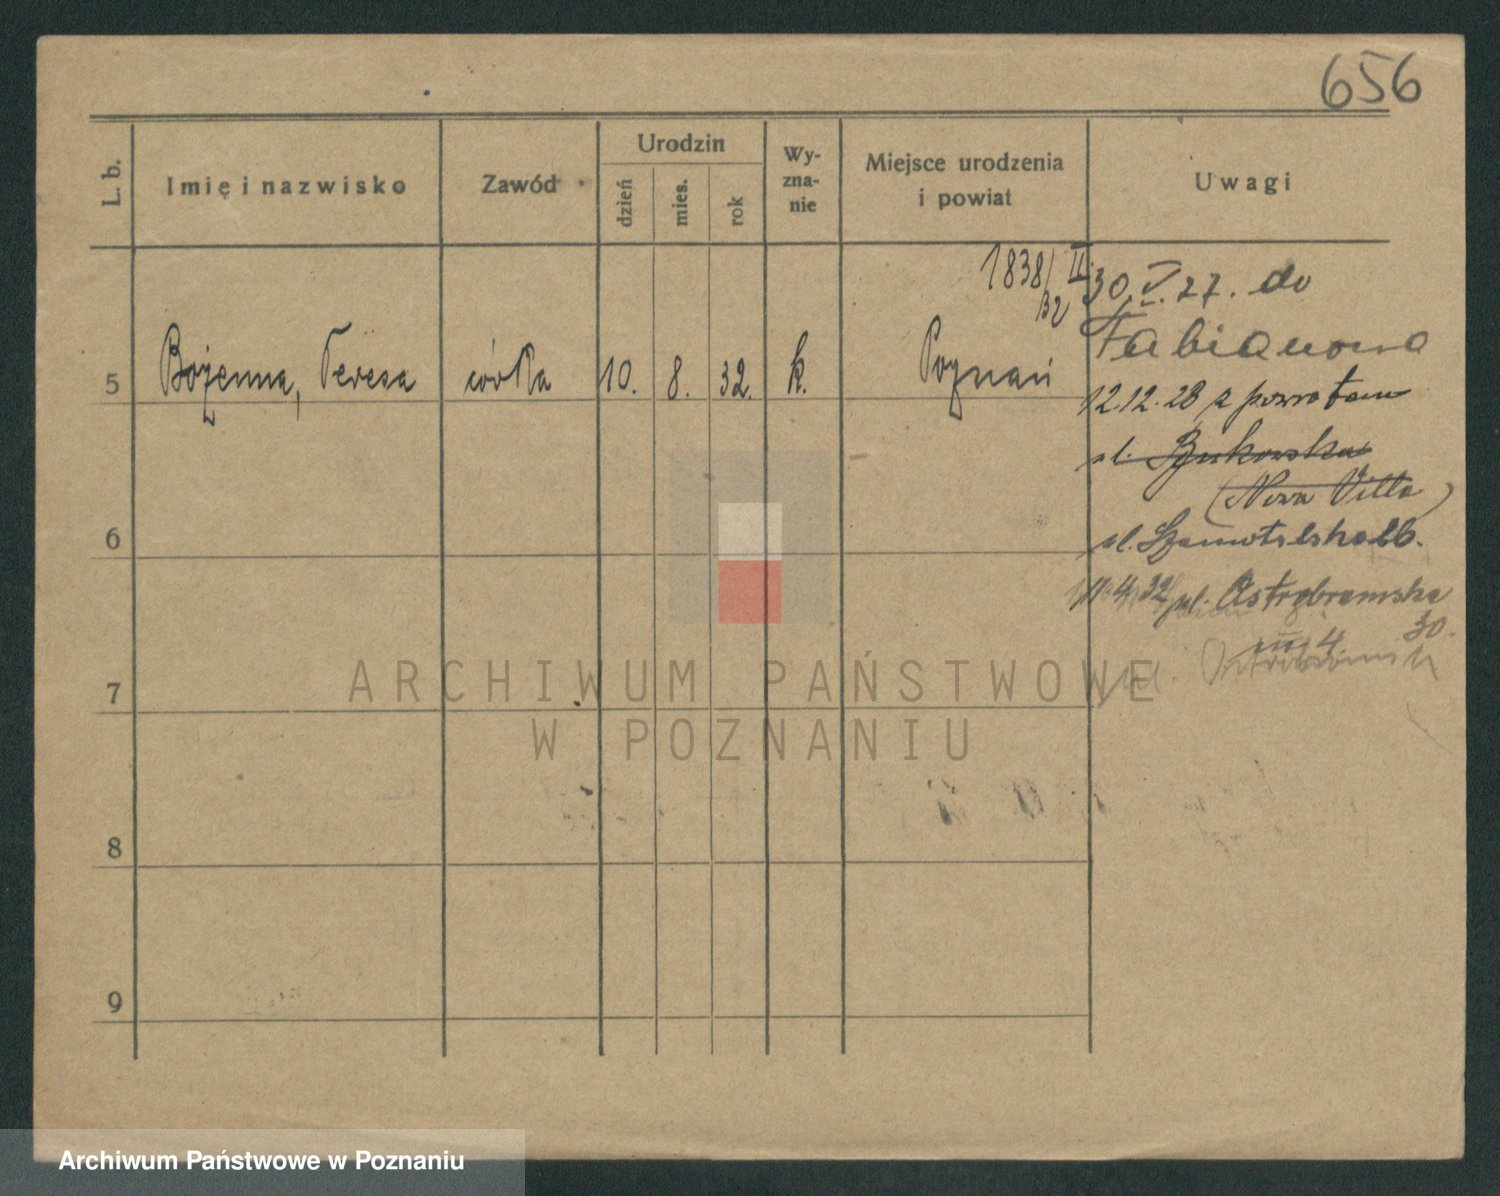 656
L. b.
Imię i nazwisko
Zawód
Urodzin
dzień
mies.
rok
Wy-
zna-
nie
Miejsce urodzenia
i powiat
Uwagi
1838/II
32
5
Bożenna, Teresa
córka
10.
8.
32.
k.
Poznań
30.V.27. do
Fabianowa
12.12.28 z powrotem
ul. Bukowska
(Nowa Villa)
ul. Szamotulska 26.
11.4.32 ul. Ostrobramska
30.
6
7
8
9
ARCHIWUM PAŃSTWOWE
W POZNANIU
Archiwum Państwowe w Poznaniu